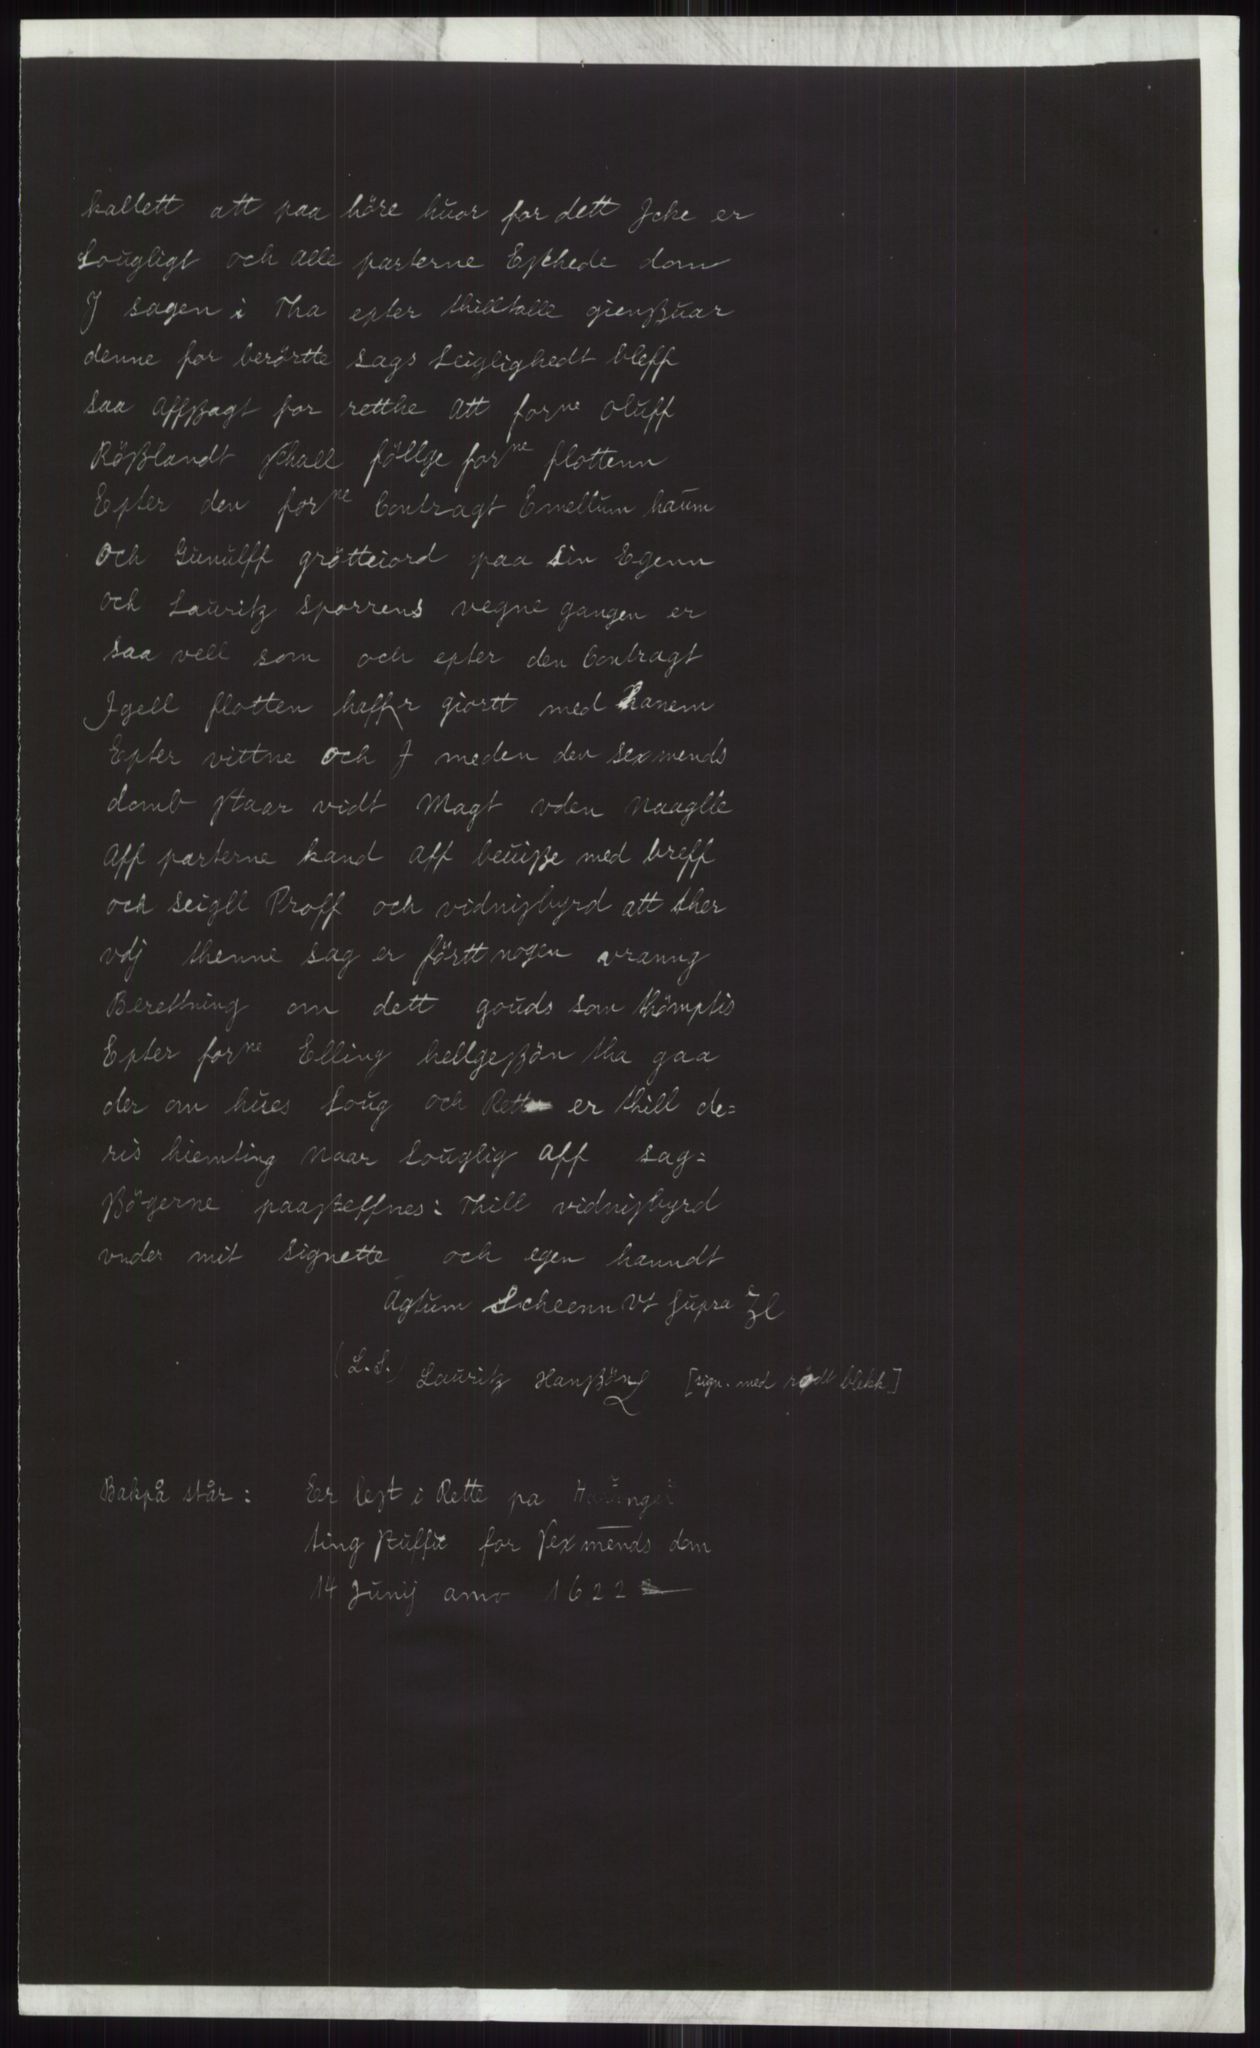 kallett att paa höre huor for dett Jcke er
Lougligt och alle parterne Eskhede dom
J sagen i Tha epter thilltalle gienßuar
denne for berörtte sags Leiglighedt bleff
saa affßagt for retthe Att forne oluff
Rößlandt skall föllge forne flottenn
Epter den forne Contragt Emellum haum
och Gunulff grötteiord paa sin Egenn
och Lauritz sporrens vegne gangen er
saa vell som och epter den Contragt
Jgell flotten haffr giortt med hanem
Epter vittne och J meden den sexmends
domb staar vidt Magt vden Naaglle
Aff parterne kand aff beuiße med breff
och seigll Proff och vidnisbyrd att ther
vdj thenne sag er förtt nogen vranng
Berettning om dett gouds som thömptis
Epter forne Elling hellgeßön tha gaa
der om hues Loug och Rett er thill de=
ris hiemting Naar Louglig aff sag=
ßögerne paasteffnes: Thill vidnisbyrd
vnder mit signette och egen hanndt
Agtum Scheenn Vt supra
(L.S.) Lauritz Hanßön [sign. med rødt blekk]
Bakpå står: Er lest i Rette pa
ting stuffu for sexmends dom
14 Junij anno 1622